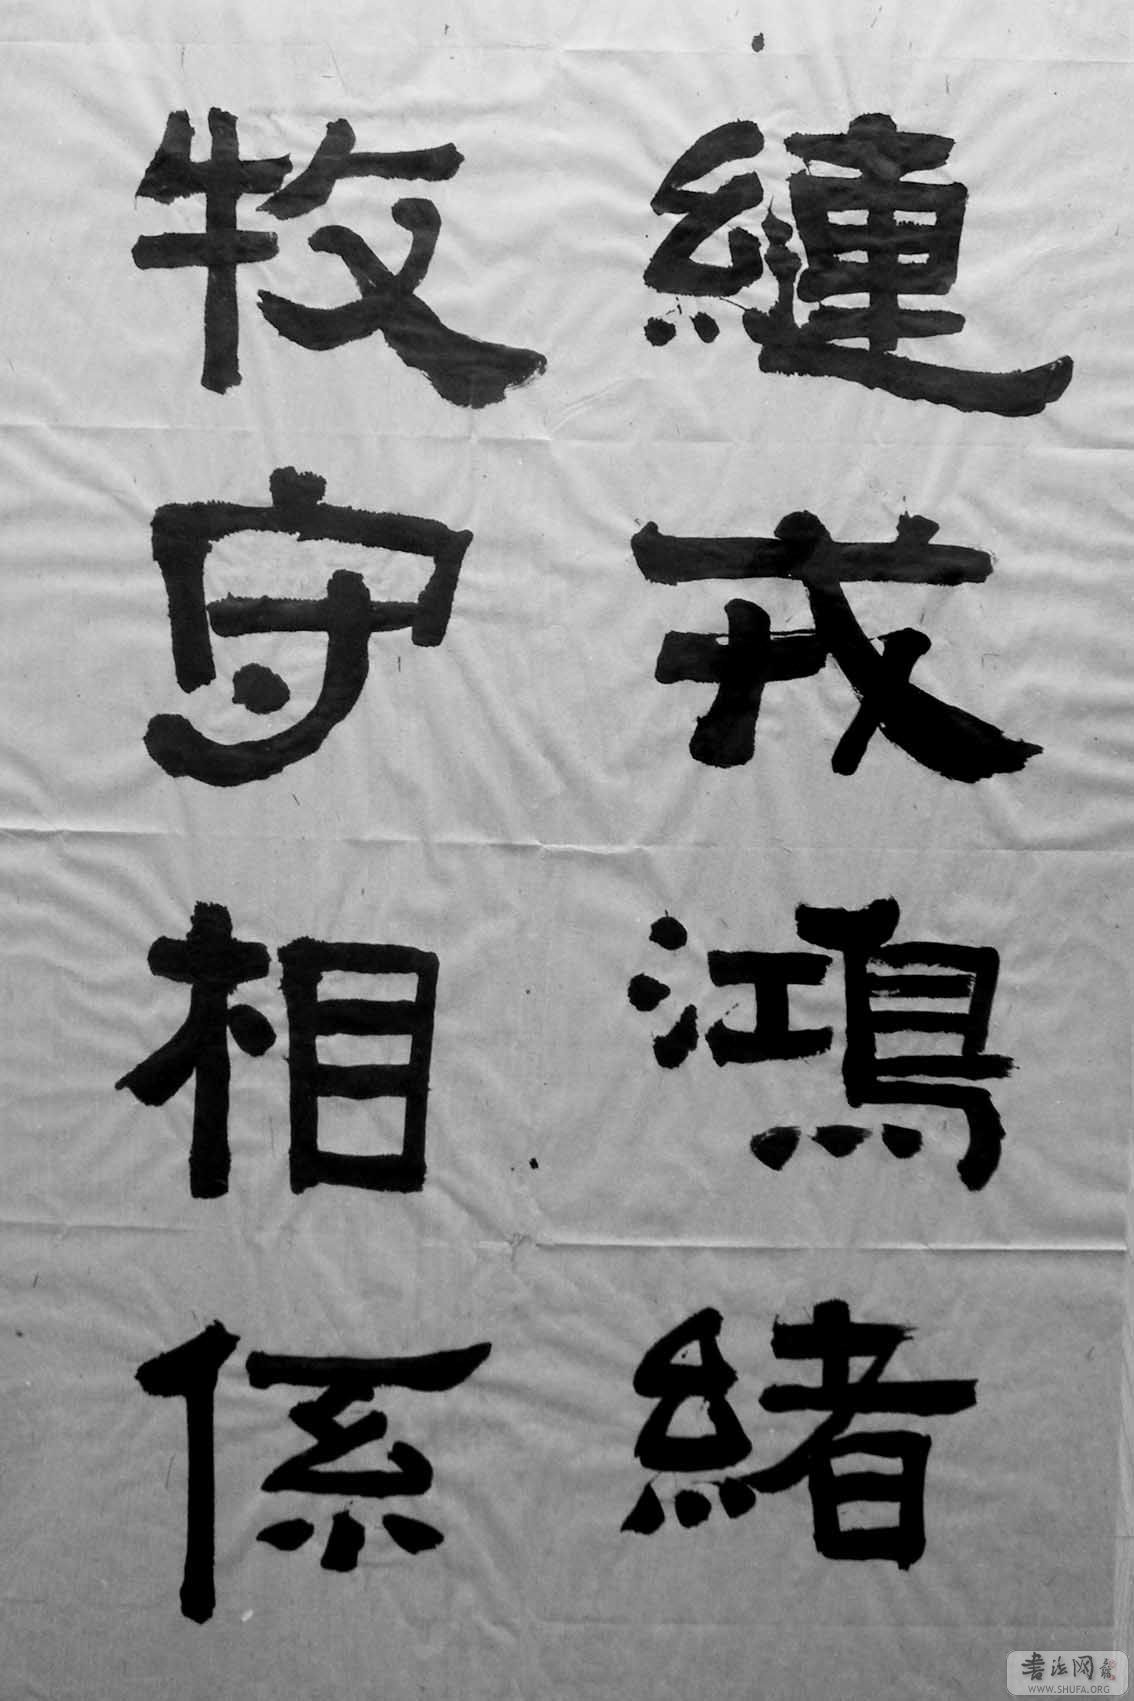 縺戒鴻緒
牧守相係
書法网
WWW.SHUFA.ORG